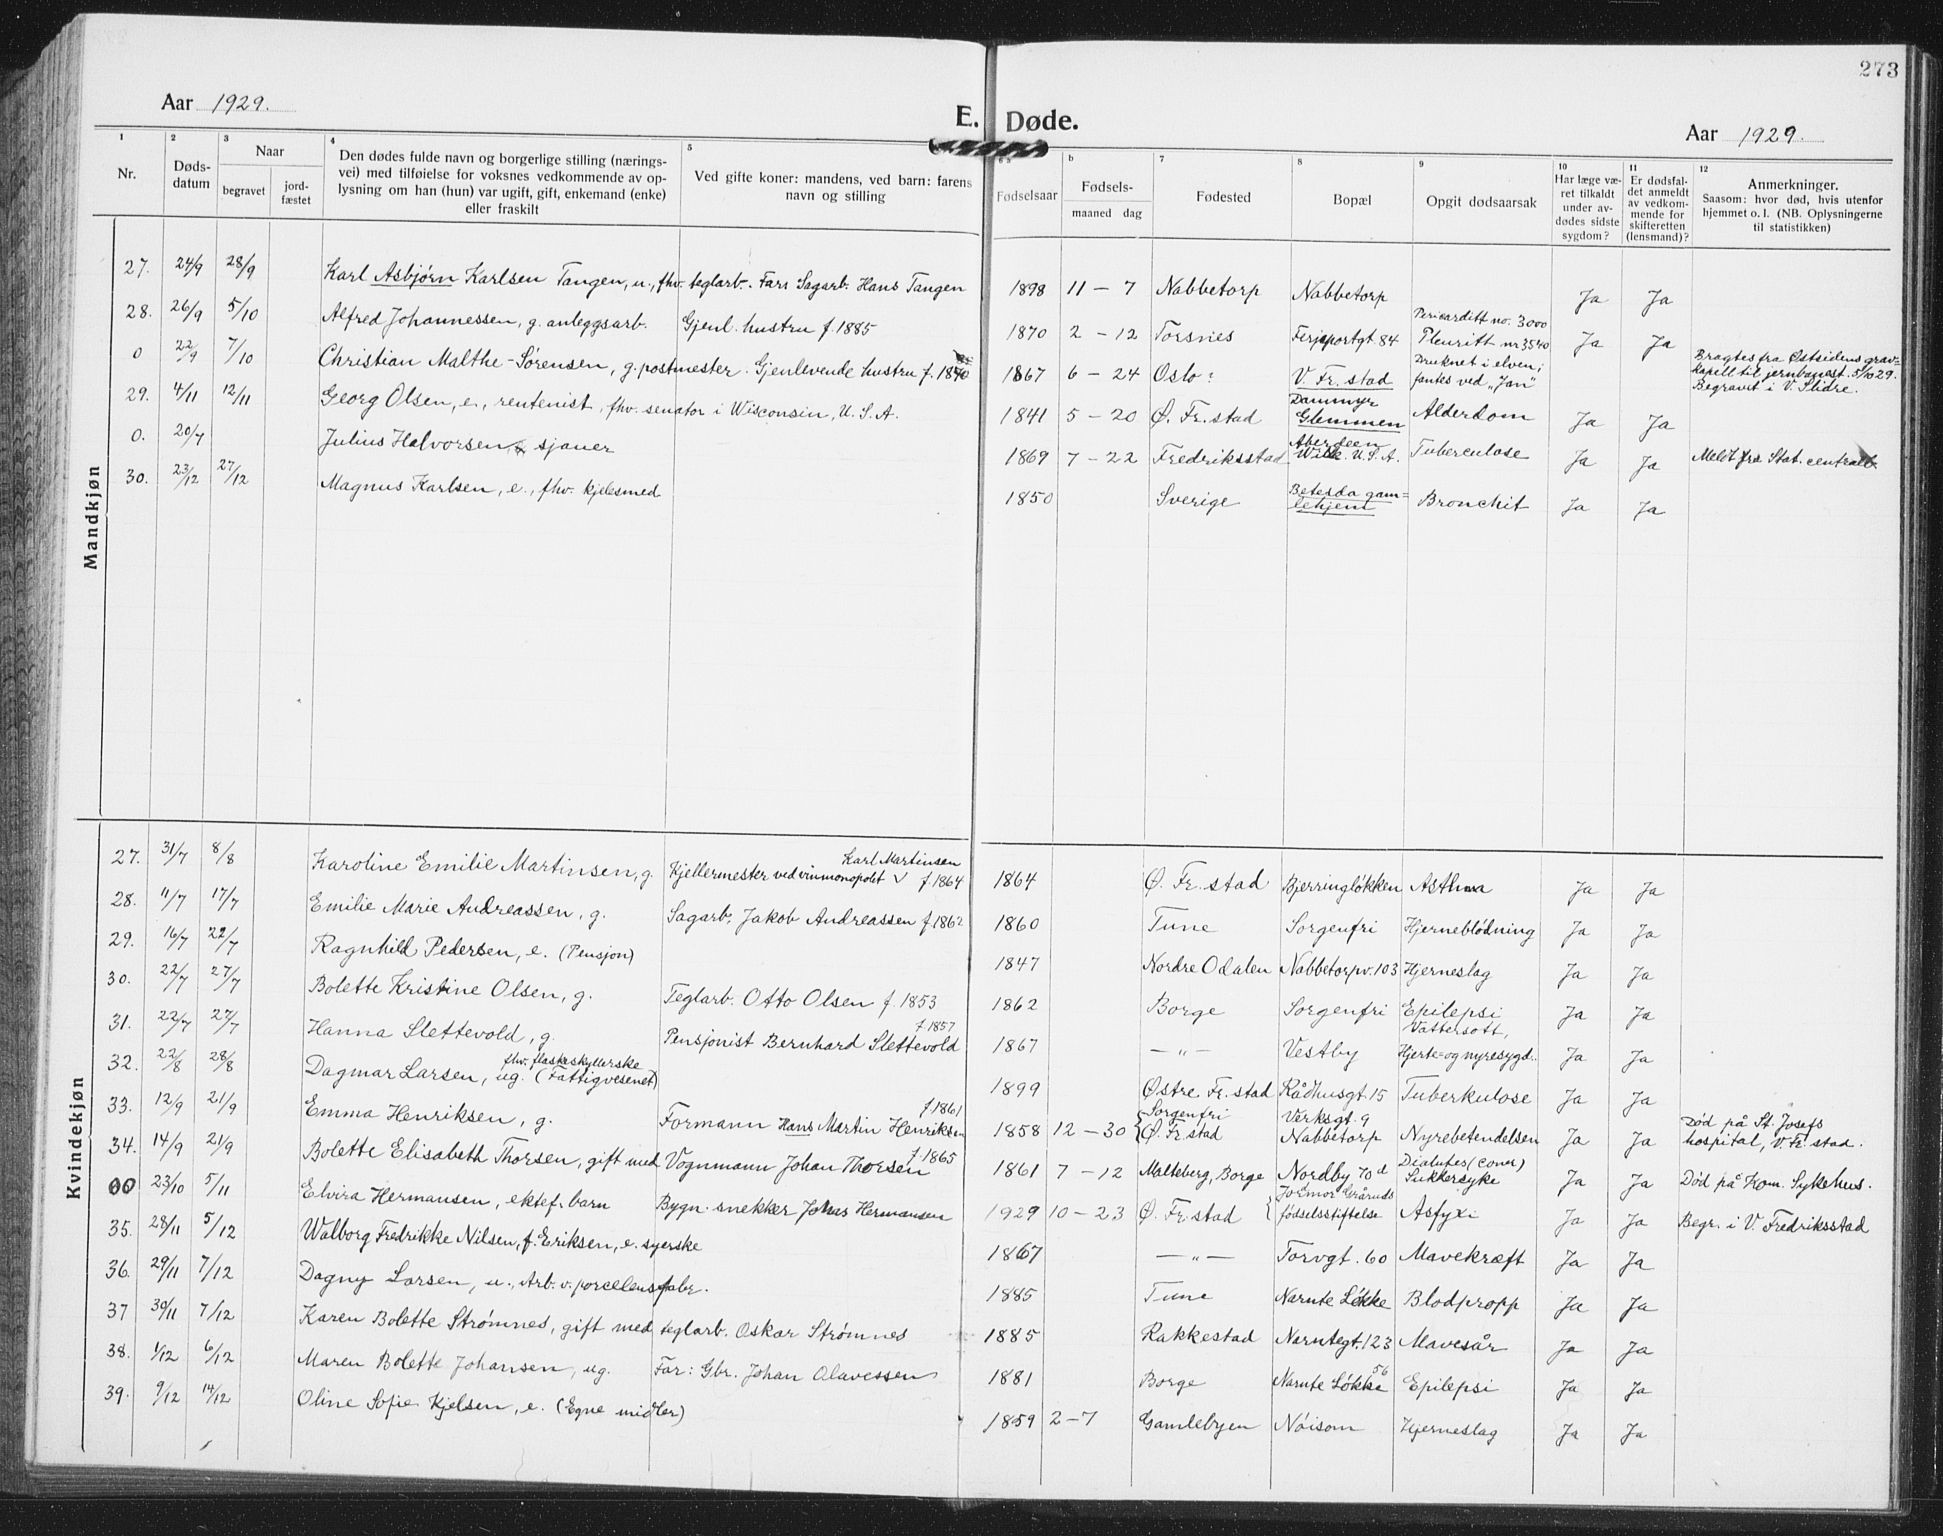 273
Aar 1929.
E. Døde.
Aar 1929.
1 2 3 4 5 6 a b 7 8 9 10 11 12
Nr.
Døds-
datum
Naar
begravet
jord-
fæstet
Den dødes fulde navn og borgerlige stilling (nærings-
vei) med tilføielse for voksnes vedkommende av op-
lysning om han (hun) var ugift, gift, enkemand (enke)
eller fraskilt
Ved gifte koner: mandens, ved barn: farens
navn og stilling
Fødselsaar
Fødsels-
maaned dag
Fødested
Bopæl
Opgit dødsaarsak
Har læge væ-
ret tilkaldt
under av-
dødes sidste
sygdom?
Er dødsfal-
det anmeldt
av vedkom-
mende for
skifteretten
(lensmand)?
Anmerkninger.
Saasom: hvor død, hvis utenfor
hjemmet o. l. (NB. Oplysningerne
til statistikken)
Mandkjøn
27. 24/9 28/9 Karl Asbjørn Karlsen Tangen, u., fhv. teglarb. Far: Sagarb. Hans Tangen 1898 11 - 7 Nabbetorp Nabbetorp Ja Ja
28. 26/9 5/10 Alfred Johannessen, g. anleggsarb. Gjenl. hustru f. 1885 1870 2 - 12 Torsnes Ferjeportgt 84 Pericarditt no. 3000
Pleuritt nr 3540 Ja Ja
0 22/9 7/10 Christian Malthe-Sørensen, g. postmester. Gjenlevende hustru f. 1867 6 - 24 Oslo: V. Fr. stad Druknet i elven;
fantes ved "Jan" Bragtes fra Østsidens grav-
kapell til jernbanest. 5/10 29.
Begravet i V. Slidre.
29. 4/11 12/11 Georg Olsen, e., rentenist, fhv. senator i Wisconsin, U.S.A. 1841 5 - 20 Ø. Fr. stad Dammyr
Glemmen Alderdom Ja Ja
0. 20/7 Julius Halvorsen sjauer 1869 7 - 22 Fredriksstad Aberdeen
U.S.A. Tuberculose Ja Ja Meldt fra Stat. centralb.
30. 23/12 27/12 Magnus Karlsen, e., fhv. kjelesmed 1850 Sverige Betesda gam=
lehjem Bronchit Ja Ja
Kvindekjøn
27. 31/7 8/8 Karoline Emilie Martinsen, g. Karl Martinsen
Kjellermester ved vinmonopolet √ f. 1864 1864 Ø. Fr. stad Bjerringløkken Asthma Ja Ja
28. 11/7 17/7 Emilie Marie Andreassen, g. Sagarb. Jakob Andreassen f. 1862 1860 Tune Sorgenfri Hjerneblødning Ja Ja
29. 16/7 22/7 Ragnhild Pedersen, e. (Pensjon) 1847 Nordre Odalen Nabbetorpv. 103 Hjerneslag Ja Ja
30. 22/7 27/7 Bolette Kristine Olsen, g. Teglarb. Otto Olsen f. 1853 1862 Borge Sorgenfri Epilepsi Ja Ja
31. 22/7 27/7 Hanna Slettevold, g. f. 1857
Pensjonist Bernhard Slettevold 1867 - " - Vestby Vattersott,
Hjerte- og nyresygd. Ja Ja
32. 22/8 28/8 fhv. flaskeskyllerske
Dagmar Larsen, ug. (Fattigvesenet) 1899 Østre Fr. stad Rådhusgt. 15 Tuberkulose Ja Ja
33. 12/9 21/9 Emma Henriksen, g. f. 1861
Formann Hans Martin Henriksen 1858 12 - 30 Sorgenfri
Ø. Fr. stad Verksgt. 9
Nabbetorp Nyrebetendelsen Ja Ja Død på St. Josefs
hospital, V. Fr. stad.
34. 14/9 21/9 Bolette Elisabeth Thorsen, gift med f. 1865
Vognmann Johan Thorsen 1861 7 - 12 Malteberg, Borge Nordby 70 d Diabetes (coner)
Sukkersyke Ja Ja Død på Kom. Sykehus.
00 23/10 5/11 Elvira Hermansen, ektef. barn Bygn. snekker Johas Hermansen 1929 10 - 23 Ø. Fr. stad Jordmor Gråruds
fødselsstiftelse Asfyxi Ja Ja Begr. i V. Fredriksstad
35. 28/11 5/12 Walborg Fredrikke Nilsen, f. Eriksen, e. syerske 1867 - " - Torvgt. 60 Mavekræft Ja Ja
36. 29/11 7/12 Dagny Larsen, u., Arb. v. porcelensfabr. 1885 Tune Narnte Løkke Blodpropp Ja Ja
37 30/11 7/12 Karen Bolette Strømnes, gift med teglarb. Oskar Strømnes 1885 Rakkestad Narntegt. 123 Mavesår Ja Ja
38. 1/12 6/12 Maren Bolette Johansen, ug. Far: Gbr. Johan Olavessen 1881 Borge Narnte Løkke 56 Epilepsi Ja Ja
39. 9/12 14/12 Oline Sofie Kjelsen, e. (Egne midler) 1859 2 - 7 Gamlebyen Nøisom Hjerneslag Ja Ja